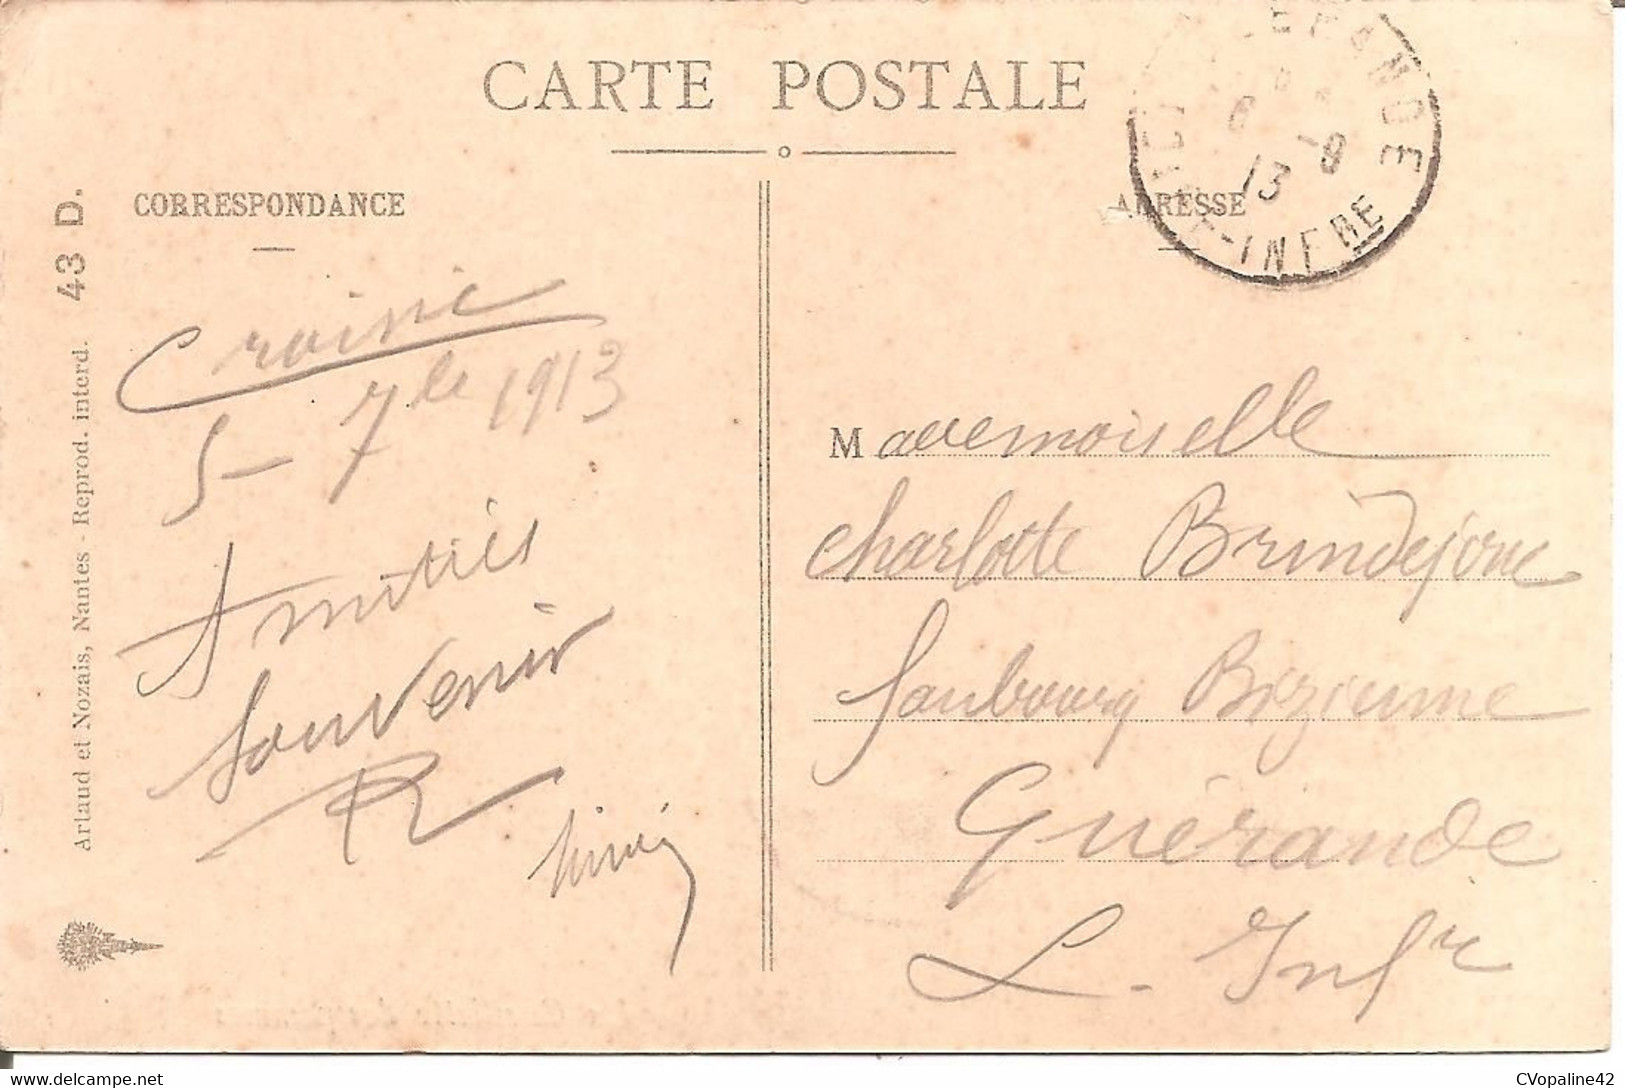 CARTE POSTALE
CORRESPONDANCE
ADRESSE
GUERANDE
6 -9
13
LOIRE-INFRE
Artaud et Nozais, Nantes - Reprod. interd. 43 D.
Croisic
5 - 7bre 1913
Amitiés
Souvenir
R
Mademoiselle
Charlotte Brindejonc
faubourg Bizienne
Guérande
L. Infre
CVopaline42